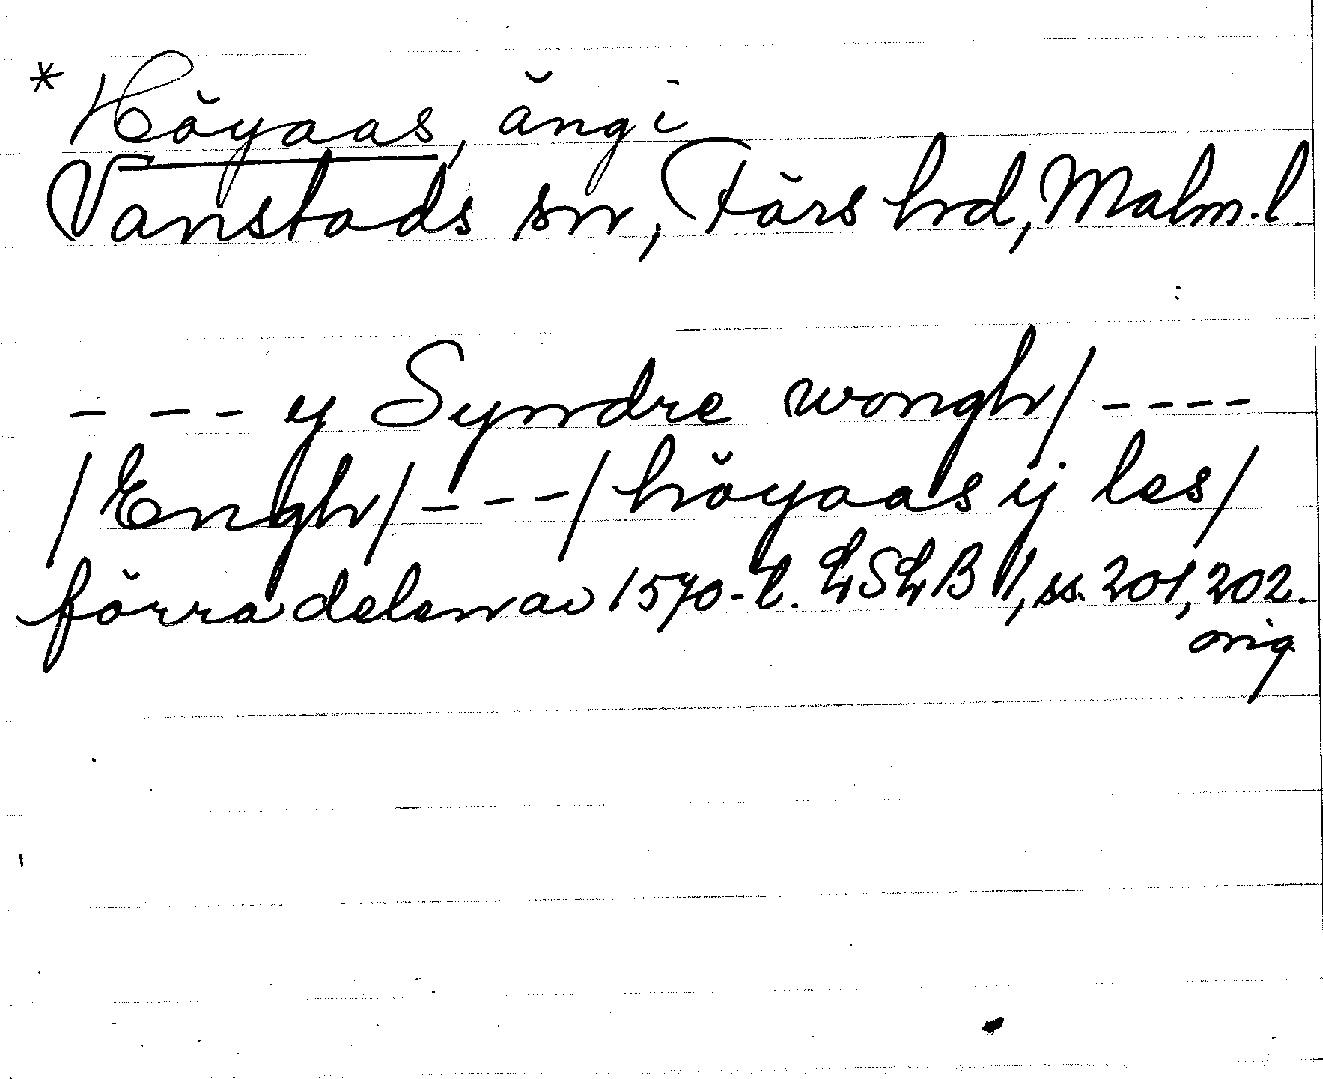 * Höyaas, äng i
Vanstads sn, Färs hd, Malm. l.
- - - y Syndre wongh / - - - -
/ Engh / - - - / höyaas ij les /
förra delen av 1570-t. LSLB 1, ss. 201, 202.
orig